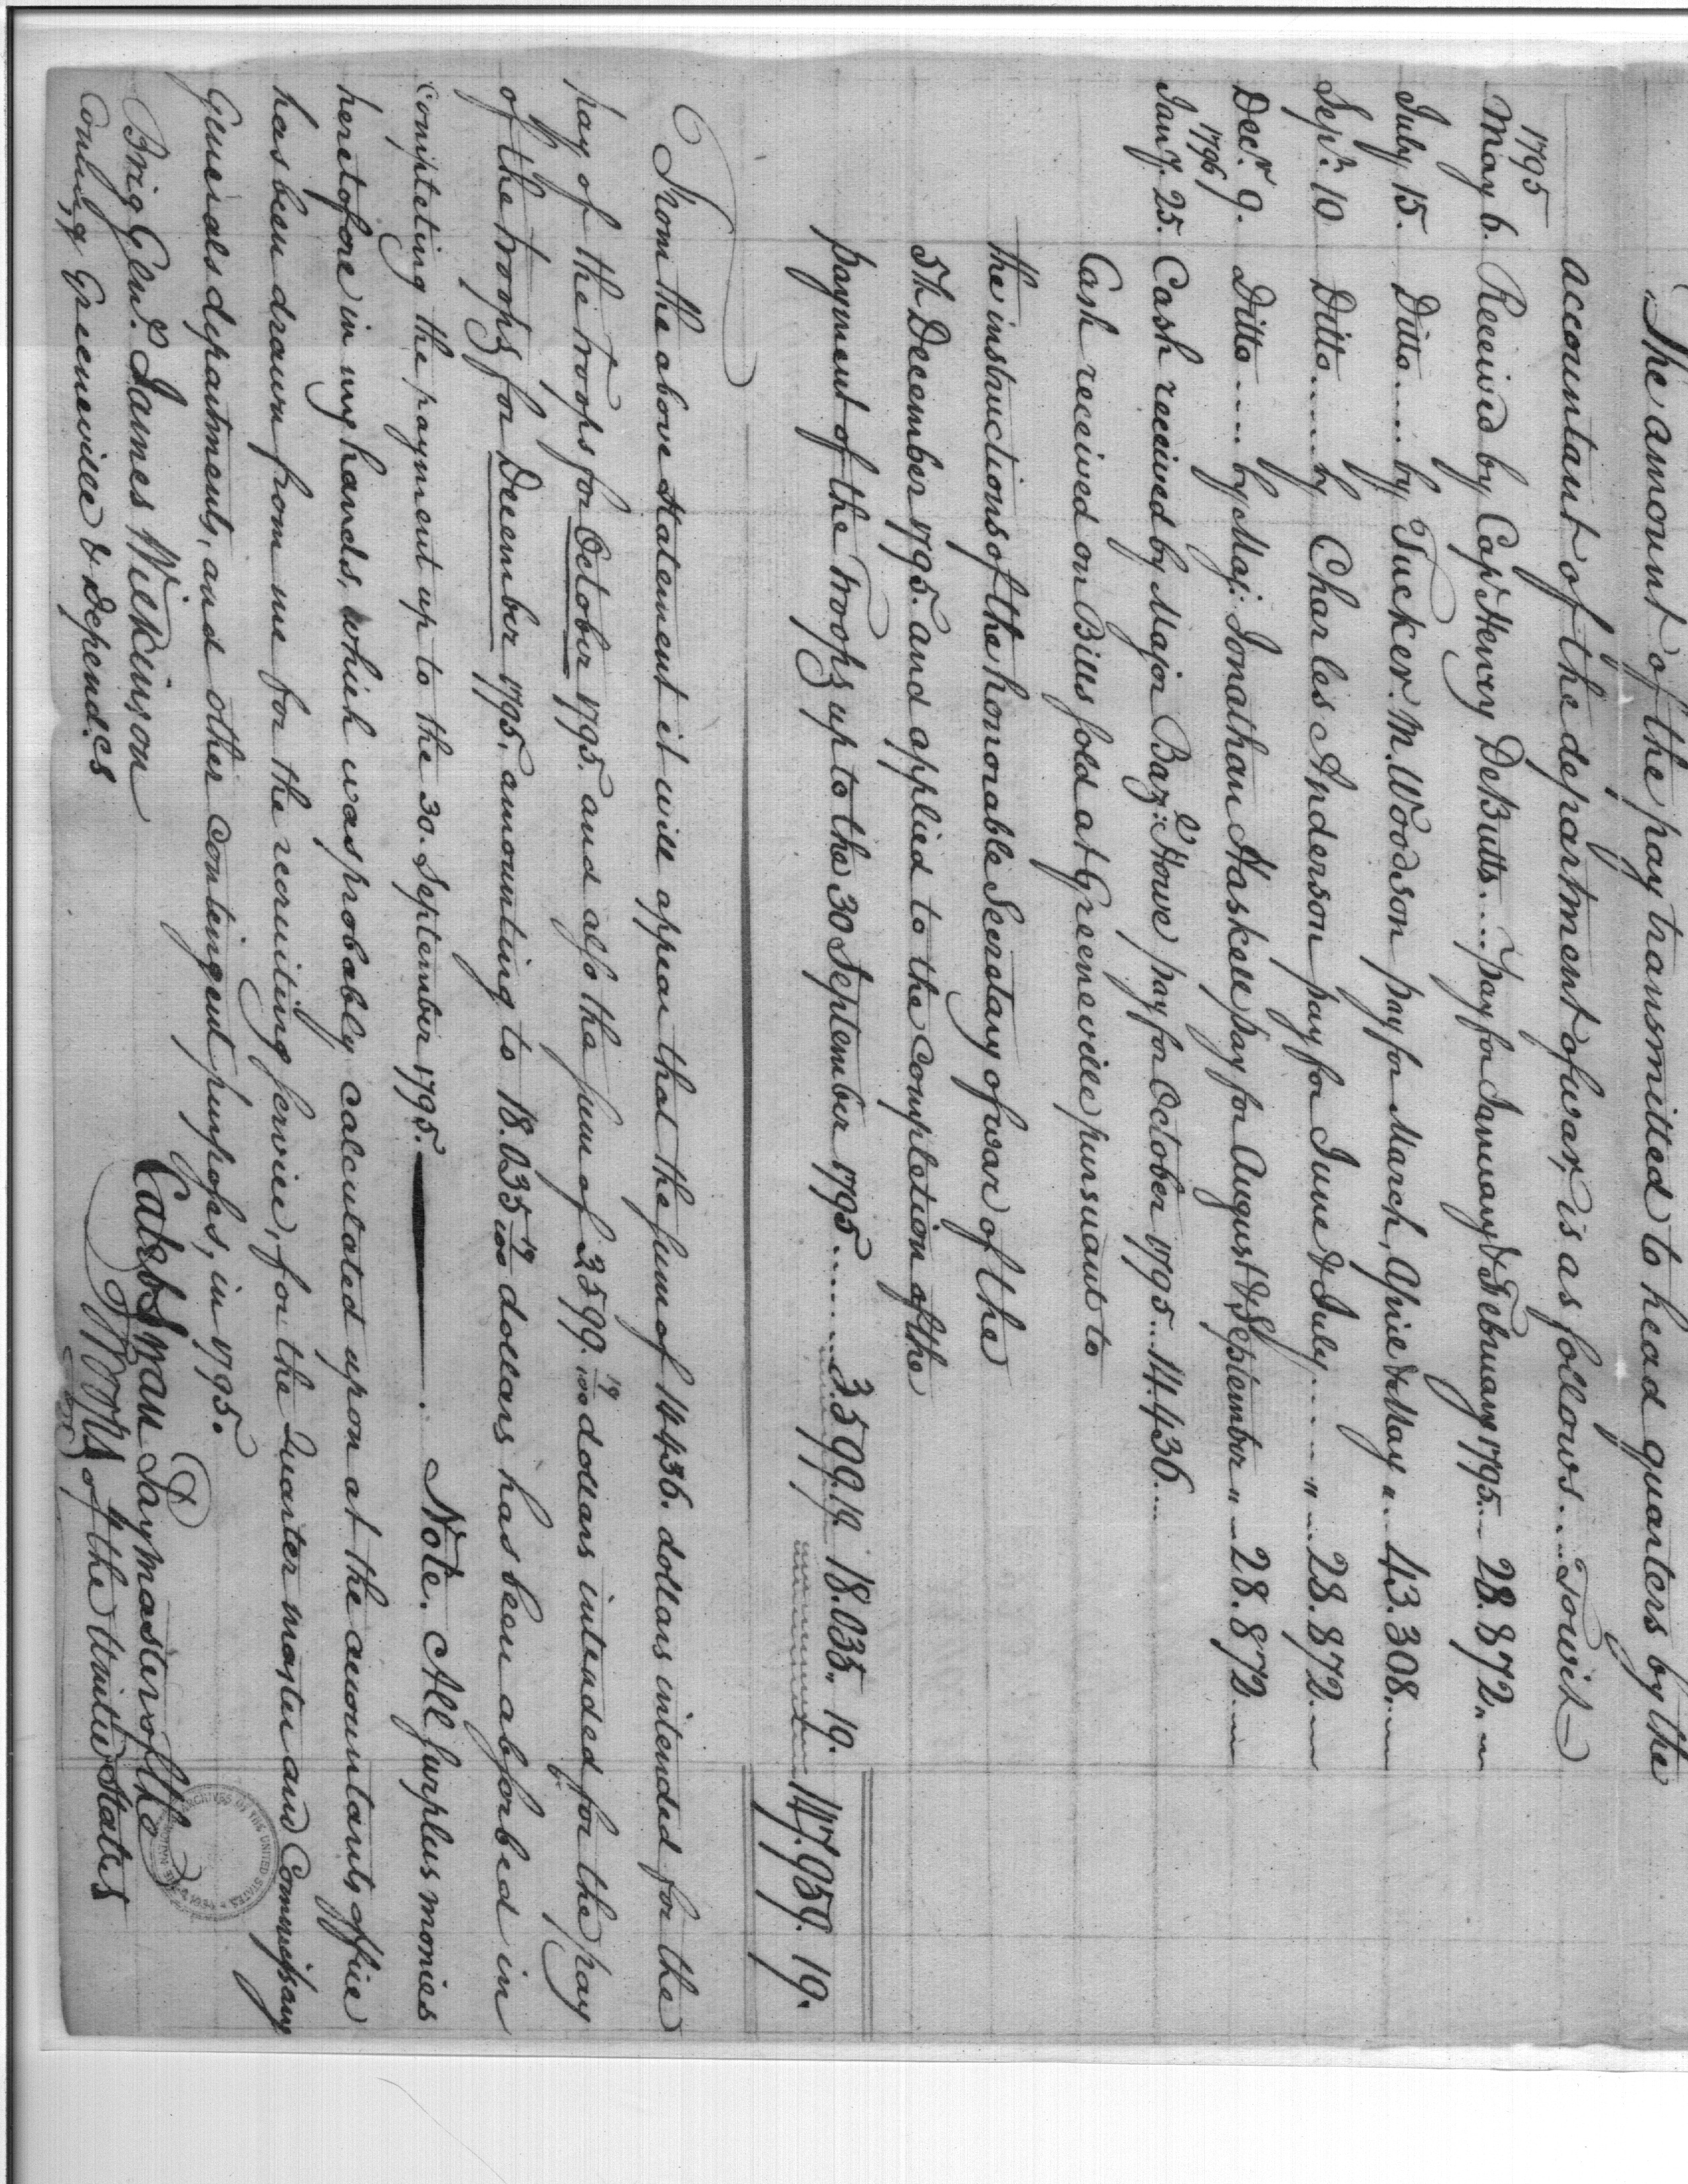 The amount of the pay transmitted to head quarters by the
accountant of the department of war, is as follows.... Towit
1795
May 6. Received by Capt. Henry DeButts.... pay for January & February 1795... 28.872. "
July 15. Ditto..... by Tucker. M. Woodson pay for March, April & May "... 43.308....
Sepr. 10 Ditto...... by Charles Anderson pay for June & July.... " ... 28.872....
Decr. 9. Ditto..... by Maj: Jonathan Haskell pay for August & September " ... 28.872....
1796
Jany. 25. Cash received by Major Bazl: Howe pay for October 1795... 14.436....
Cash received on Bills sold at Greeneville pursuant to
the instructions of the honorable Secretary of war of the
5th. December 1795. and applied to the completion of the
payment of the troops up to the 30 September 1795........ 3.599.19. 18.035. 19.
147.959. 19.
From the above statement it will appear that the sum of 14436. dollars intended for the
pay of the troops for October 1795. and also the sum of 3599. 19/100 dollars intended for the pay
of the troops for December 1795. amounting to 18.035 19/100 dollars has been absorbed in
completing the payment up to the 30. September 1795. Note. All surplus monies
heretofore in my hands, which was probably calculated upon at the accountants office
has been drawn from me for the recruiting service, for the Quarter master and Commissary
Generals departments, and other contingent purposes, in 1795.
Brig Genl. James Wilkinson
Comdg Greeneville & dependces
Caleb Swan Paymaster of the
Troops of the United States
ARCHIVES OF THE UNITED STATES